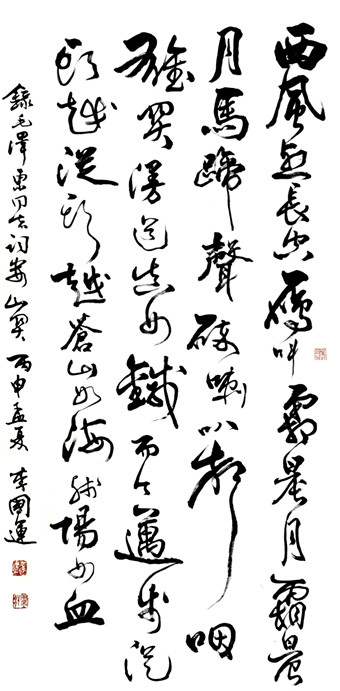 西風烈長空雁叫霜晨月霜晨
月馬蹄聲碎喇叭聲咽
雄關漫道真如鐵而今邁步從
頭越從頭越蒼山如海殘陽如血
錄毛澤東同志詞婁山關 丙申孟夏 李國運